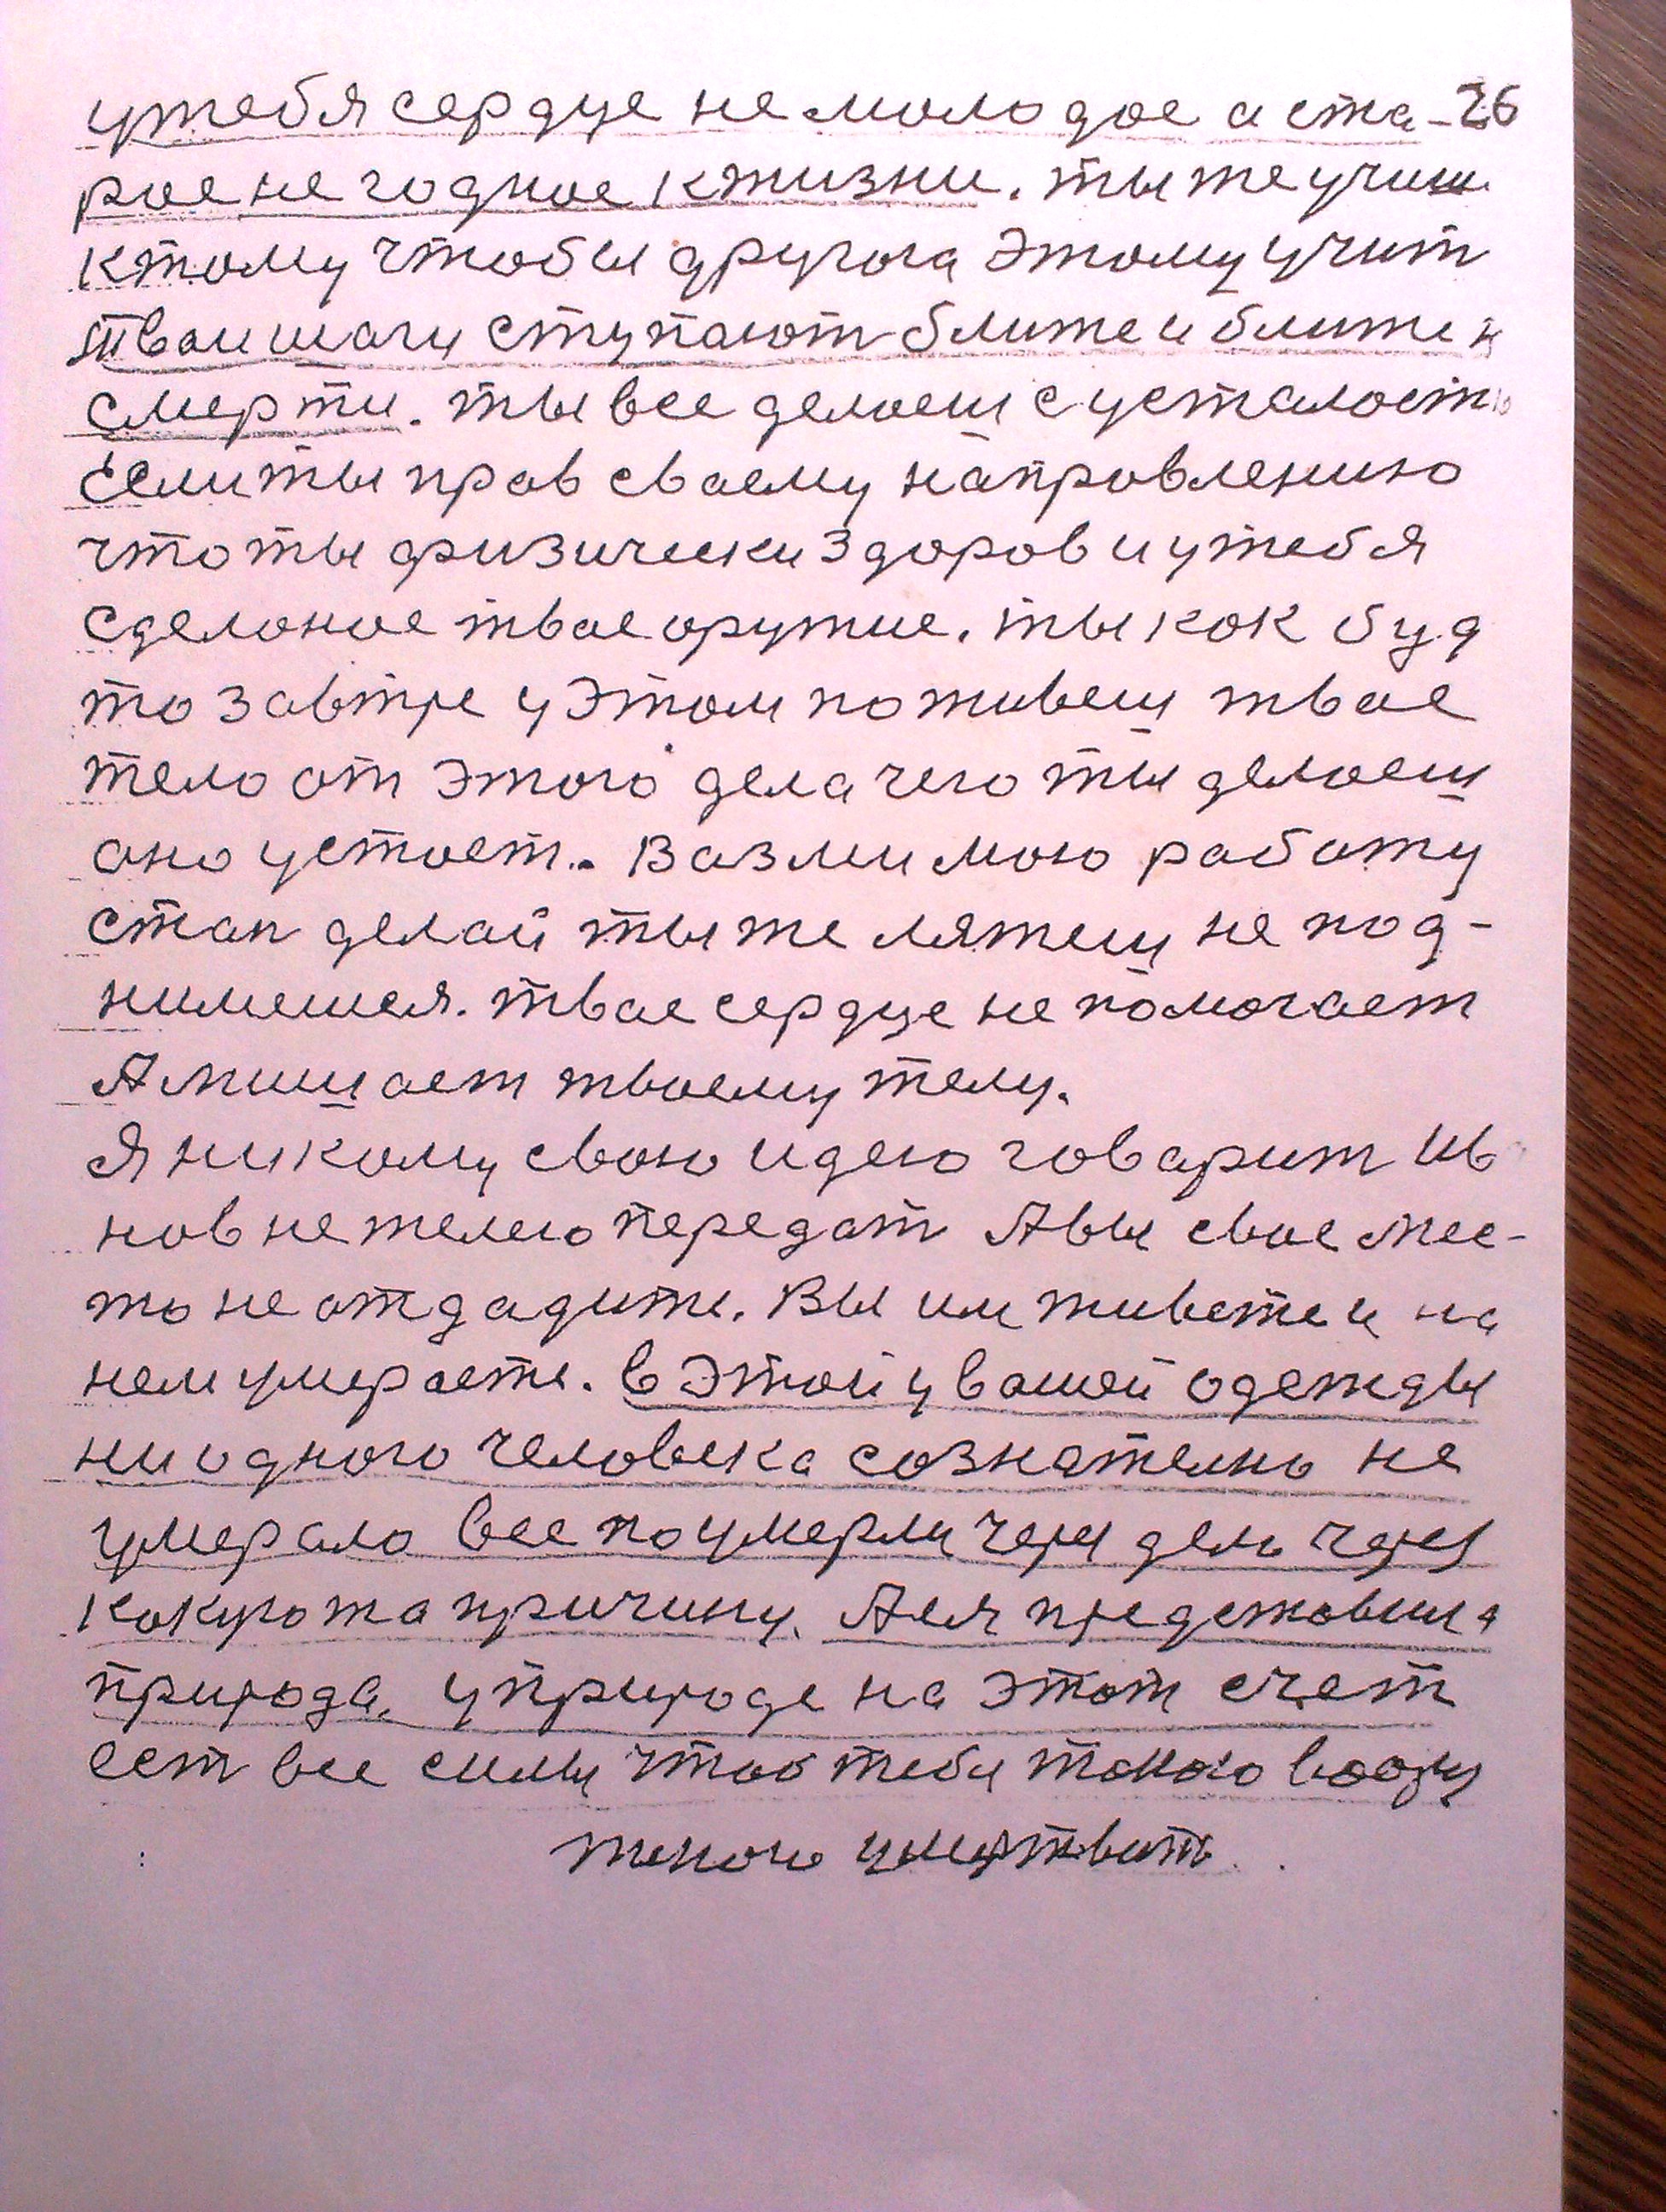 утебя сердце не молодое а ста- 26
рое не годное к жизни. ты же учиш
ктому чтобы другога этому учит
тваи шаги ступают ближе и ближе к
смерти. ты все делаеш с усталостю
Если ты прав сваему направлению
что ты физически здоров и утебя
сделоное твае оружие. ты как буд
то завтре у этом поживеш твае
тело от этого дела чего ты делаеш
ано устает. Вазми мою работу
стан делай ты же ляжеш не под-
нимешся. твае сердце не помогает
А мишает тваему телу.
Я никому свою идею говарит Ив
нов не желею передат А вы свае мес-
то не отдадите. Вы им живете и на
нем умераете. в этой у вашей одежды
ни одного человека сознателно не
умерало все поумерли через ден через
какуюта причину. А ея представила
природа. у природе на этот счет
ест все силы чтоб тебя такого воору
женого умертвить